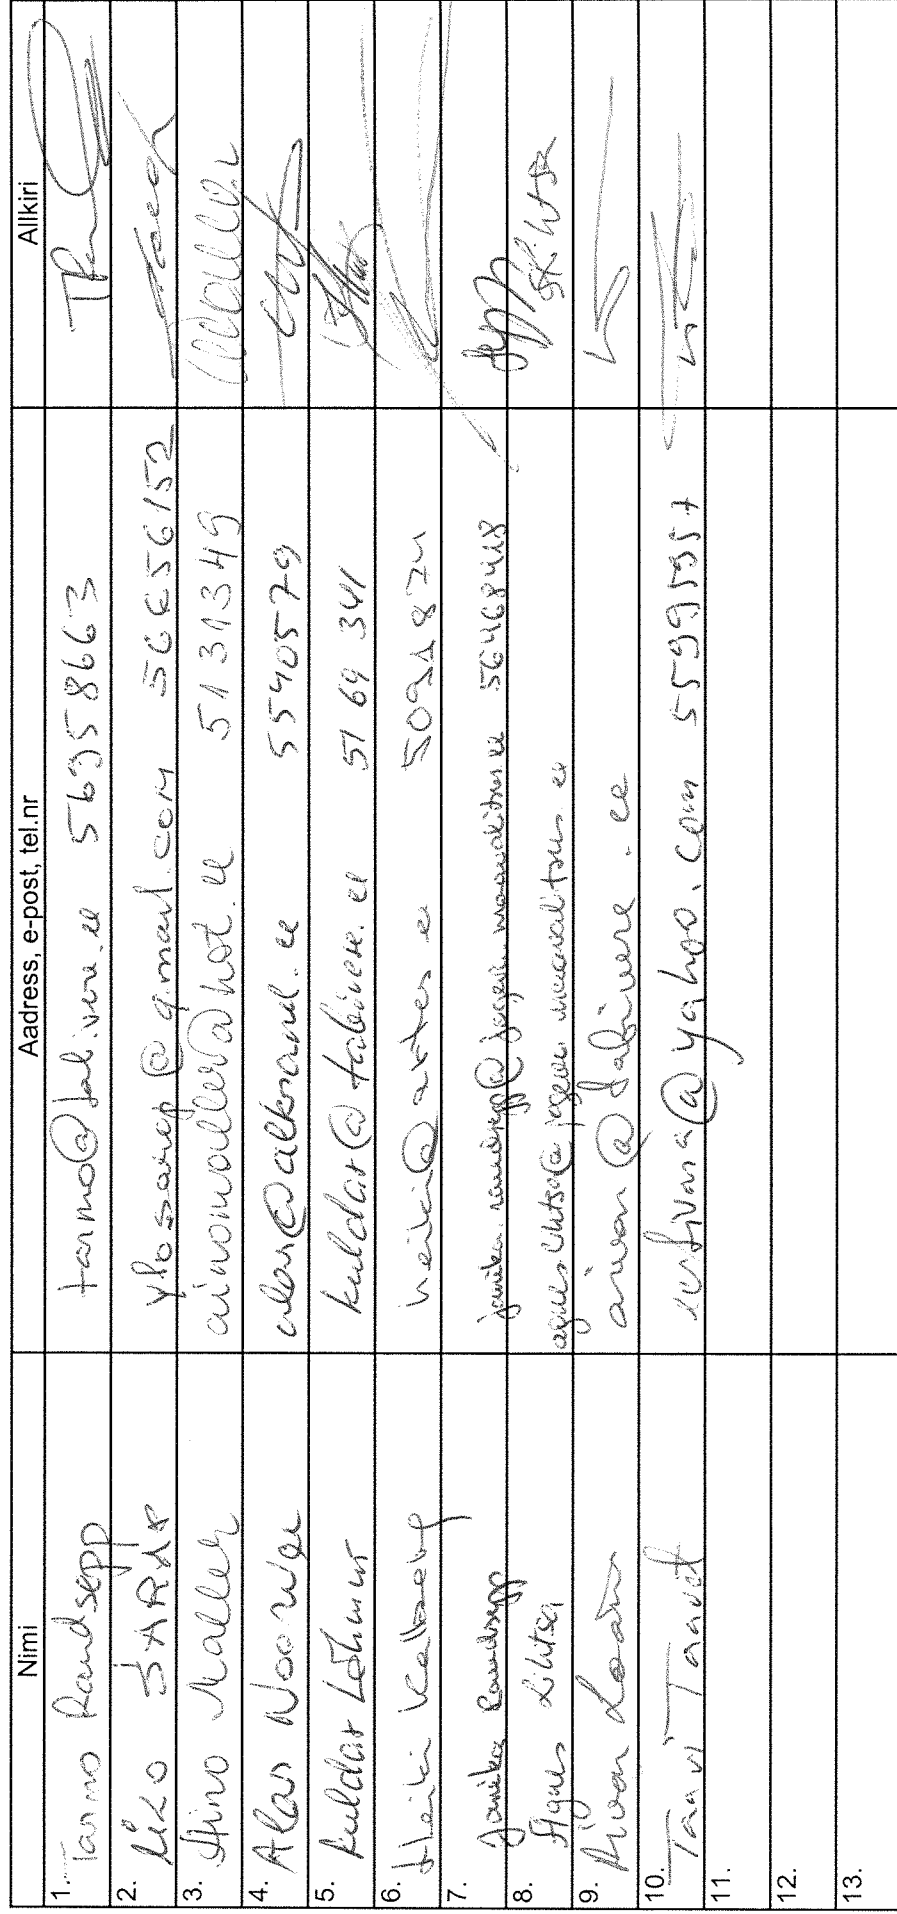 Nimi Aadress, e-post, tel.nr Allkiri
1. Tarmo Raudsepp tarmo@tabivere.ee 56958663
2. Ülo SARAP ylosarap@gmail.com 56656152
3. Aino Maller ainomaller@hot.ee 5131349
4. Alar alar@ 5540579
5. Kuldar Lõhmus kuldar@tabivere.ee 5169341
6. Heiki heiki@artes.ee 5091824
7. Janika Raudsepp janika.raudsepp@jogeva.maavalitsus.ee 56468418
8. Agnes Lihtsa agnes.lihtsa@jogeva.maavalitsus.ee
9. Aivar @tabivere.ee
10. Taavi Taavet @yahoo.com 55995957
11.
12.
13.